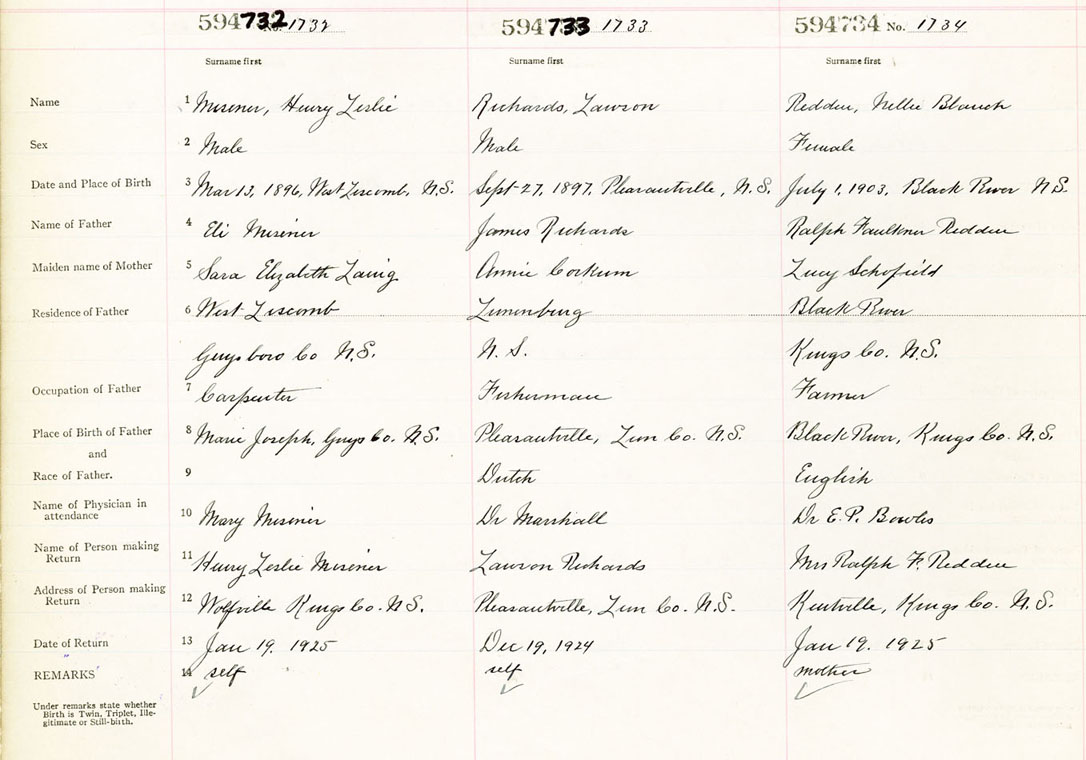 594732 No. 1732 594733 1733 594734 No. 1734
Surname first Surname first Surname first
Name 1 Misener, Henry Leslie Richards, Lawson Redden, Nellie Blanch
Sex 2 Male Male Female
Date and Place of Birth 3 Mar 13, 1896, West Liscomb, N.S. Sept 27, 1897, Pleasantville, N.S. July 1, 1903, Black River N.S.
Name of Father 4 Eli Misener James Richards Ralph Faulkner Redden
Maiden name of Mother 5 Sara Elizabeth Laing Annie Corkum Lucy Schofield
Residence of Father 6 West Liscomb Lunenburg Black River
Guysboro Co N.S. N.S. Kings Co. N.S.
Occupation of Father 7 Carpenter Fisherman Farmer
Place of Birth of Father 8 Marie Joseph, Guys Co. N.S. Pleasantville, Lun Co. N.S. Black River, Kings Co. N.S.
and
Race of Father. 9 Dutch English
Name of Physician in
attendance 10 Mary Misener Dr Marshall Dr E.P. Bowles
Name of Person making
Return 11 Henry Leslie Misener Lawson Richards Mrs Ralph F. Redden
Address of Person making
Return 12 Wolfville Kings Co. N.S. Pleasantville, Lun Co. N.S. Kentville, Kings Co. N.S.
Date of Return 13 Jan 19. 1925 Dec 19, 1924 Jan 19. 1925
REMARKS 14 self self mother
Under remarks state whether
Birth is Twin, Triplet, Ille-
gitimate or Still-birth.